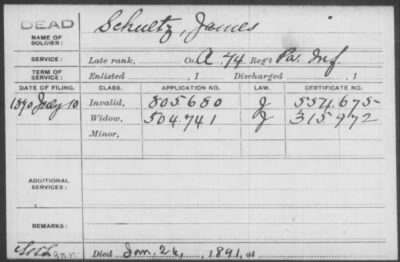 DEAD
NAME OF SOLDIER: Schultz, James
SERVICE: Late rank, Co. A. 74 Reg't Pa. Inf.
TERM OF SERVICE: Enlisted , 1 Discharged , 1
DATE OF FILING. CLASS. APPLICATION NO. LAW. CERTIFICATE NO.
1890 July 10 Invalid, 805680 J 554.675
Widow, 504.741 J 315972
Minor,
ADDITIONAL SERVICES:
REMARKS:
Died Jan. 26, 1891, at